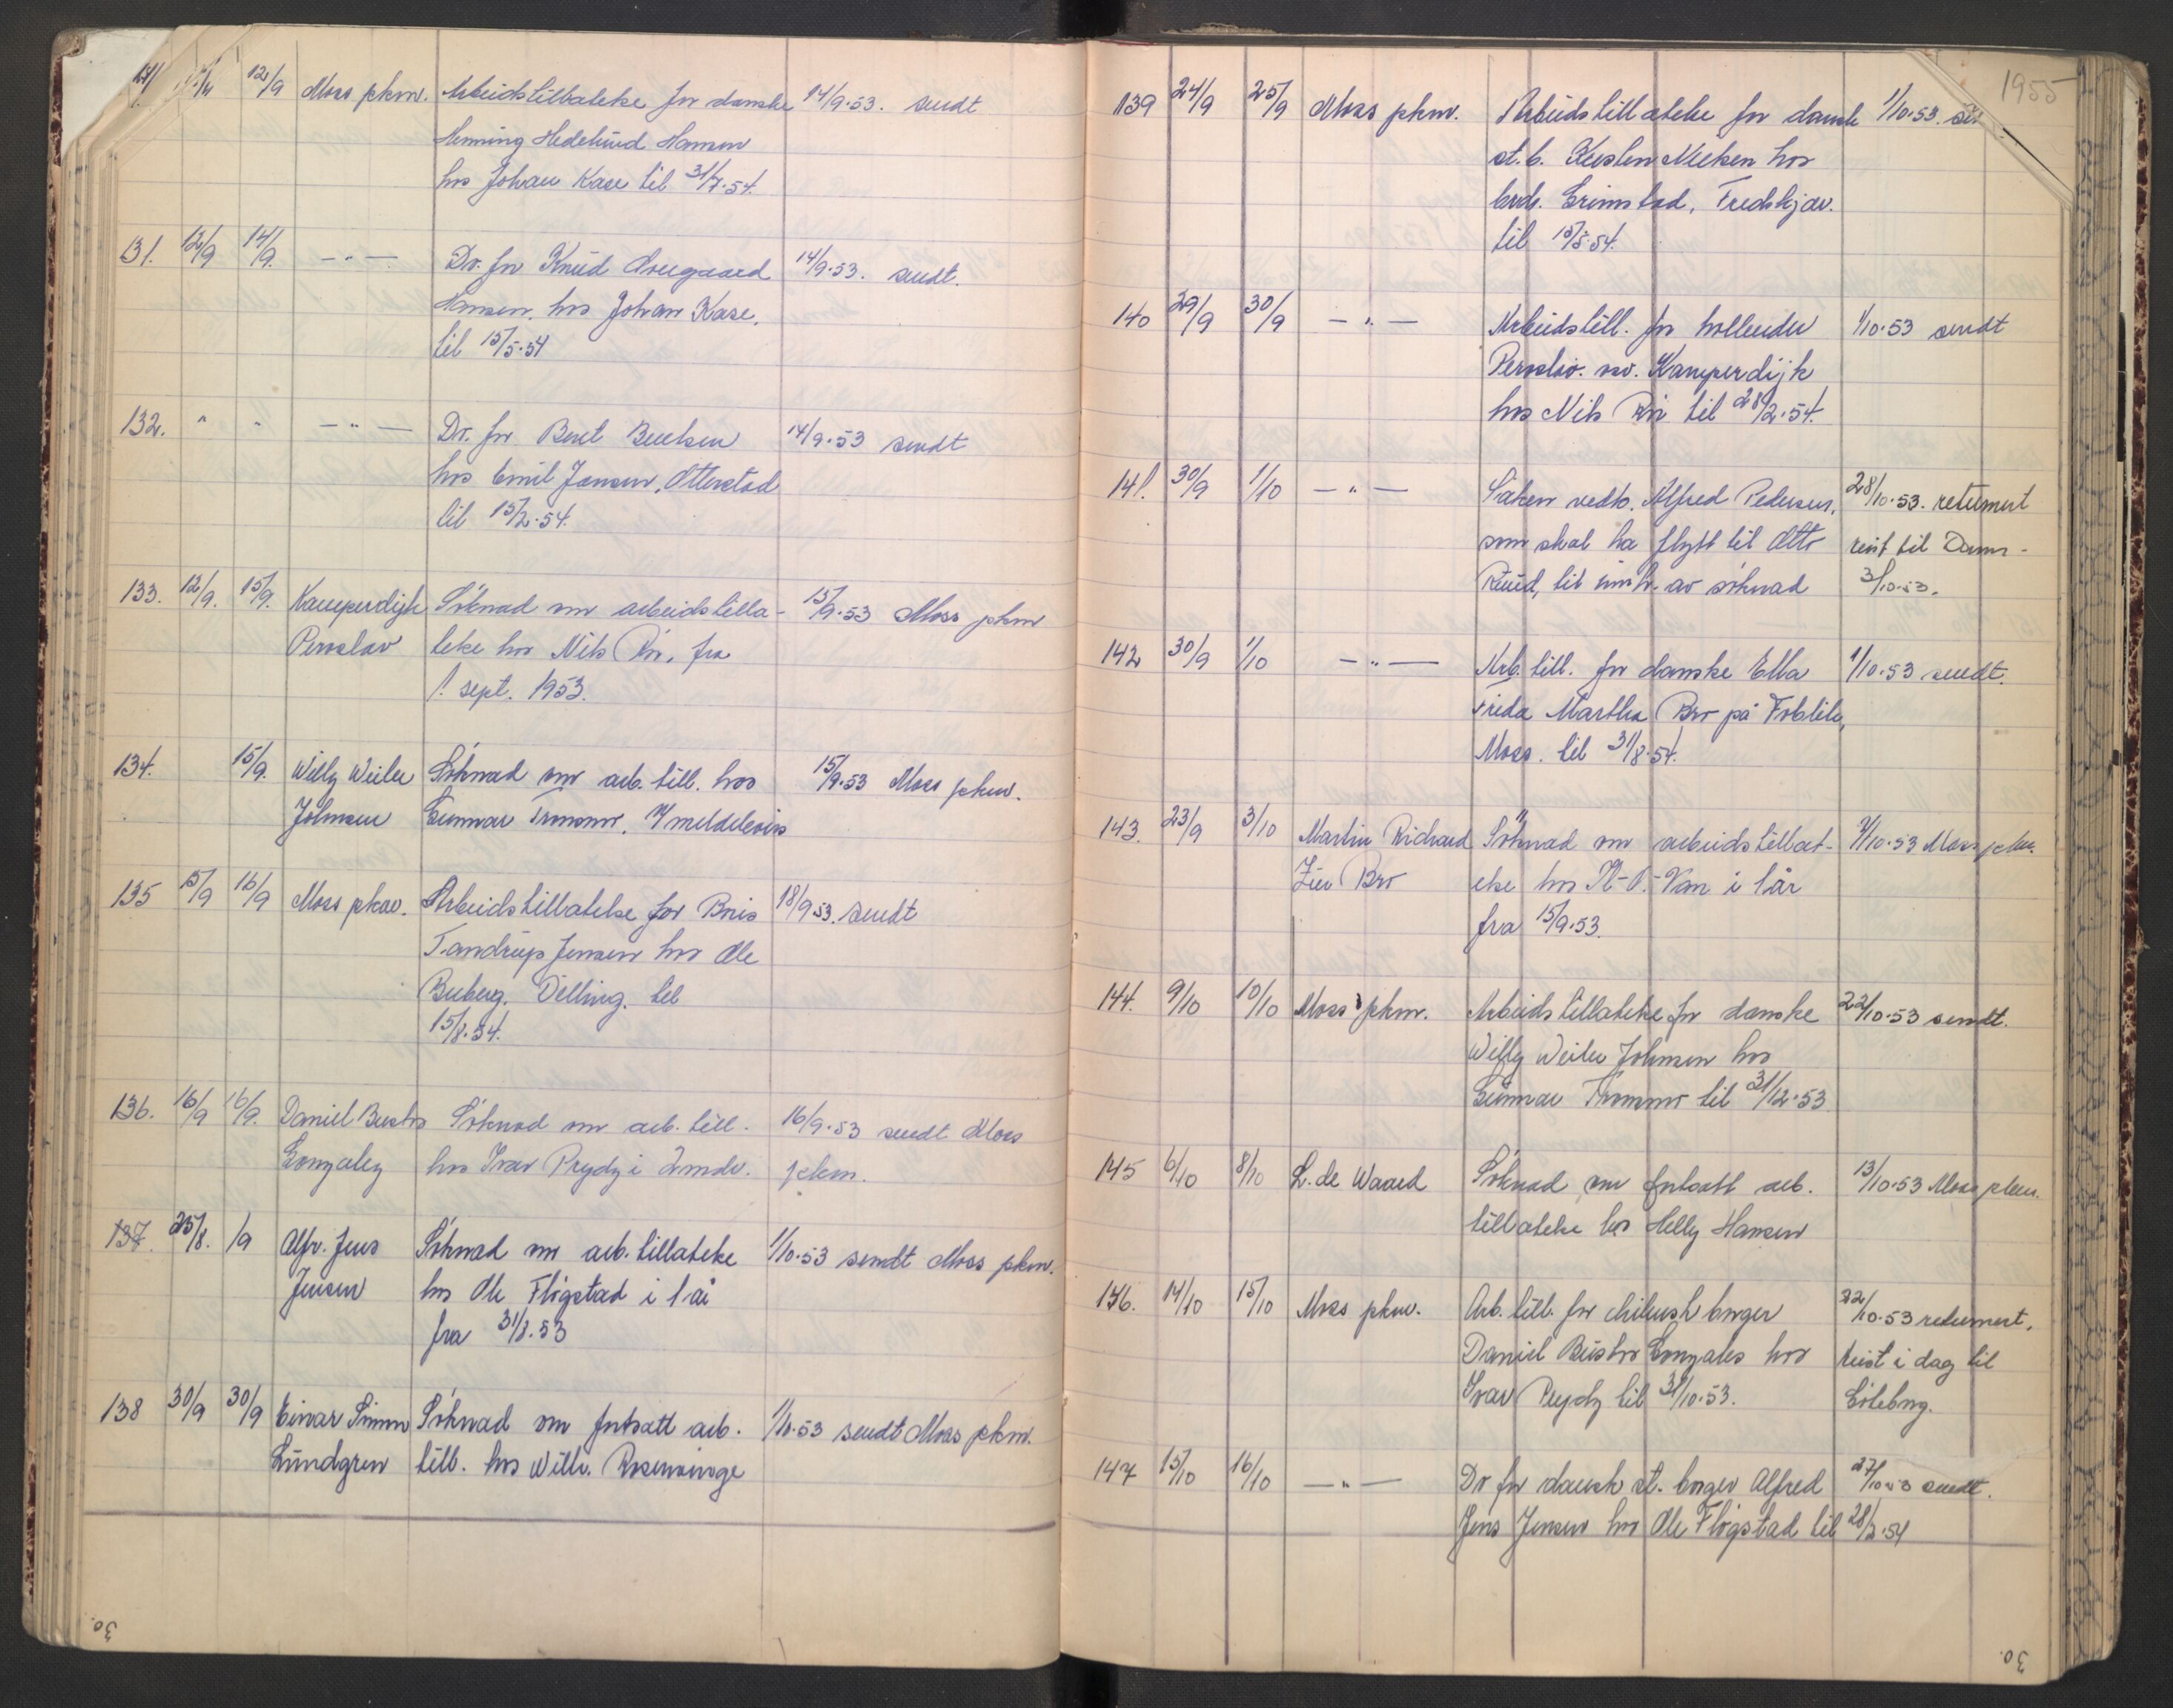 12/9 Moss pkm. Arbeidstillatelse for danske 14/9-53. sendt
Henning Hedelund Hansen
hos Johan Kase til 31/7-54.
131. 12/9 14/9. — " — Do. for Knud Ovegaard 14/9-53. sendt.
Hansen, hos Johan Kase,
til 15/5-54
132. " " — " — Do. for Bent 14/9-53 sendt
hos Emil Jansen, Otterstad
til 15/2-54.
133. 12/9. 15/9. Kamperdijk Söknad om arbeidstilla- 15/9-53 Moss pkm
Peroslav telse hos Nils Rör, fra
1. sept. 1953.
134. 15/9. Willy Weiler Söknad om arb. till. hos 15/9-53 Moss pkm.
Johnsen Gunnar Tromsmo,
135 15/9 16/9 Moss pkm. Arbeidstillatelse for Bris 18/9 53. sendt
Tandrup Jensen hos Ole
Buberg. Dilling. til
15/8-54.
136. 16/9 16/9. Daniel Bustos Söknad om arb. till. 16/9-53 sendt Moss
Gonzalez hos Ivar Prydz i 2 mdr. pkm.
137. 25/8. 1/9 Alfr. Jens Söknad om arb. tillatelse 1/10-53 sendt Moss pkm.
Jensen hos Ole Flögstad i 1 år
fra 31/8-53
138 30/9 30/9 Einar Simon Söknad om fortsatt arb. 1/10-53 sendt Moss pkm.
Lundgren till. hos Willv. Rosenvinge
30.
1955
139 24/9 25/9 Moss pkm. Arbeidstillatelse for dansk 1/10-53.
st.b. Kirsten Nielsen hos
brdr. Grimstad, Fredskjær.
til 15/5-54.
140 29/9 30/9 — " — Arbeidstill. for hollender 1/10-53 sendt
Peroslav. Kamperdijk
hos Nils Rör til 28/2-54.
141. 30/9 1/10 — " — Saken vedr. Alfred Pedersen, 28/10-53. returnert
som skal ha flytt til Otto reist til Danm-
Ruud, til innh. av söknad 3/10-53.
142 30/9 1/10 — " — Arb. till. for danske Ella 1/10-53 sendt.
Frida Martha Bro på
Moss. til 31/8-54.
143. 23/9 3/10 Martin Richard Söknad om arbeidstillat- 7/10-53 Moss pkm.
Bro else hos i 1 år
fra 15/9-53.
144. 9/10 10/10 Moss pkm. Arbeidstillatelse for danske 22/10-53 sendt.
Willy Weiler Johnsen hos
Gunnar Tromsmo til 31/12-53
145 6/10 8/10 L. de Waard Söknad om fortsatt arb. 13/10-53 Moss pkm.
tillatelse hos Helly Hansen
146. 14/10 15/10 Moss pkm. Arb. till. for chilensk borger 22/10-53 returnert,
Daniel Bustos Gonzales hos reist i dag til
Ivar Prydz til 31/10-53. Göteborg.
147 15/10 16/10 — " — Do for dansk st. borger Alfred 27/10-53 sendt.
Jens Jensen hos Ole Flögstad til 28/2-54
30.